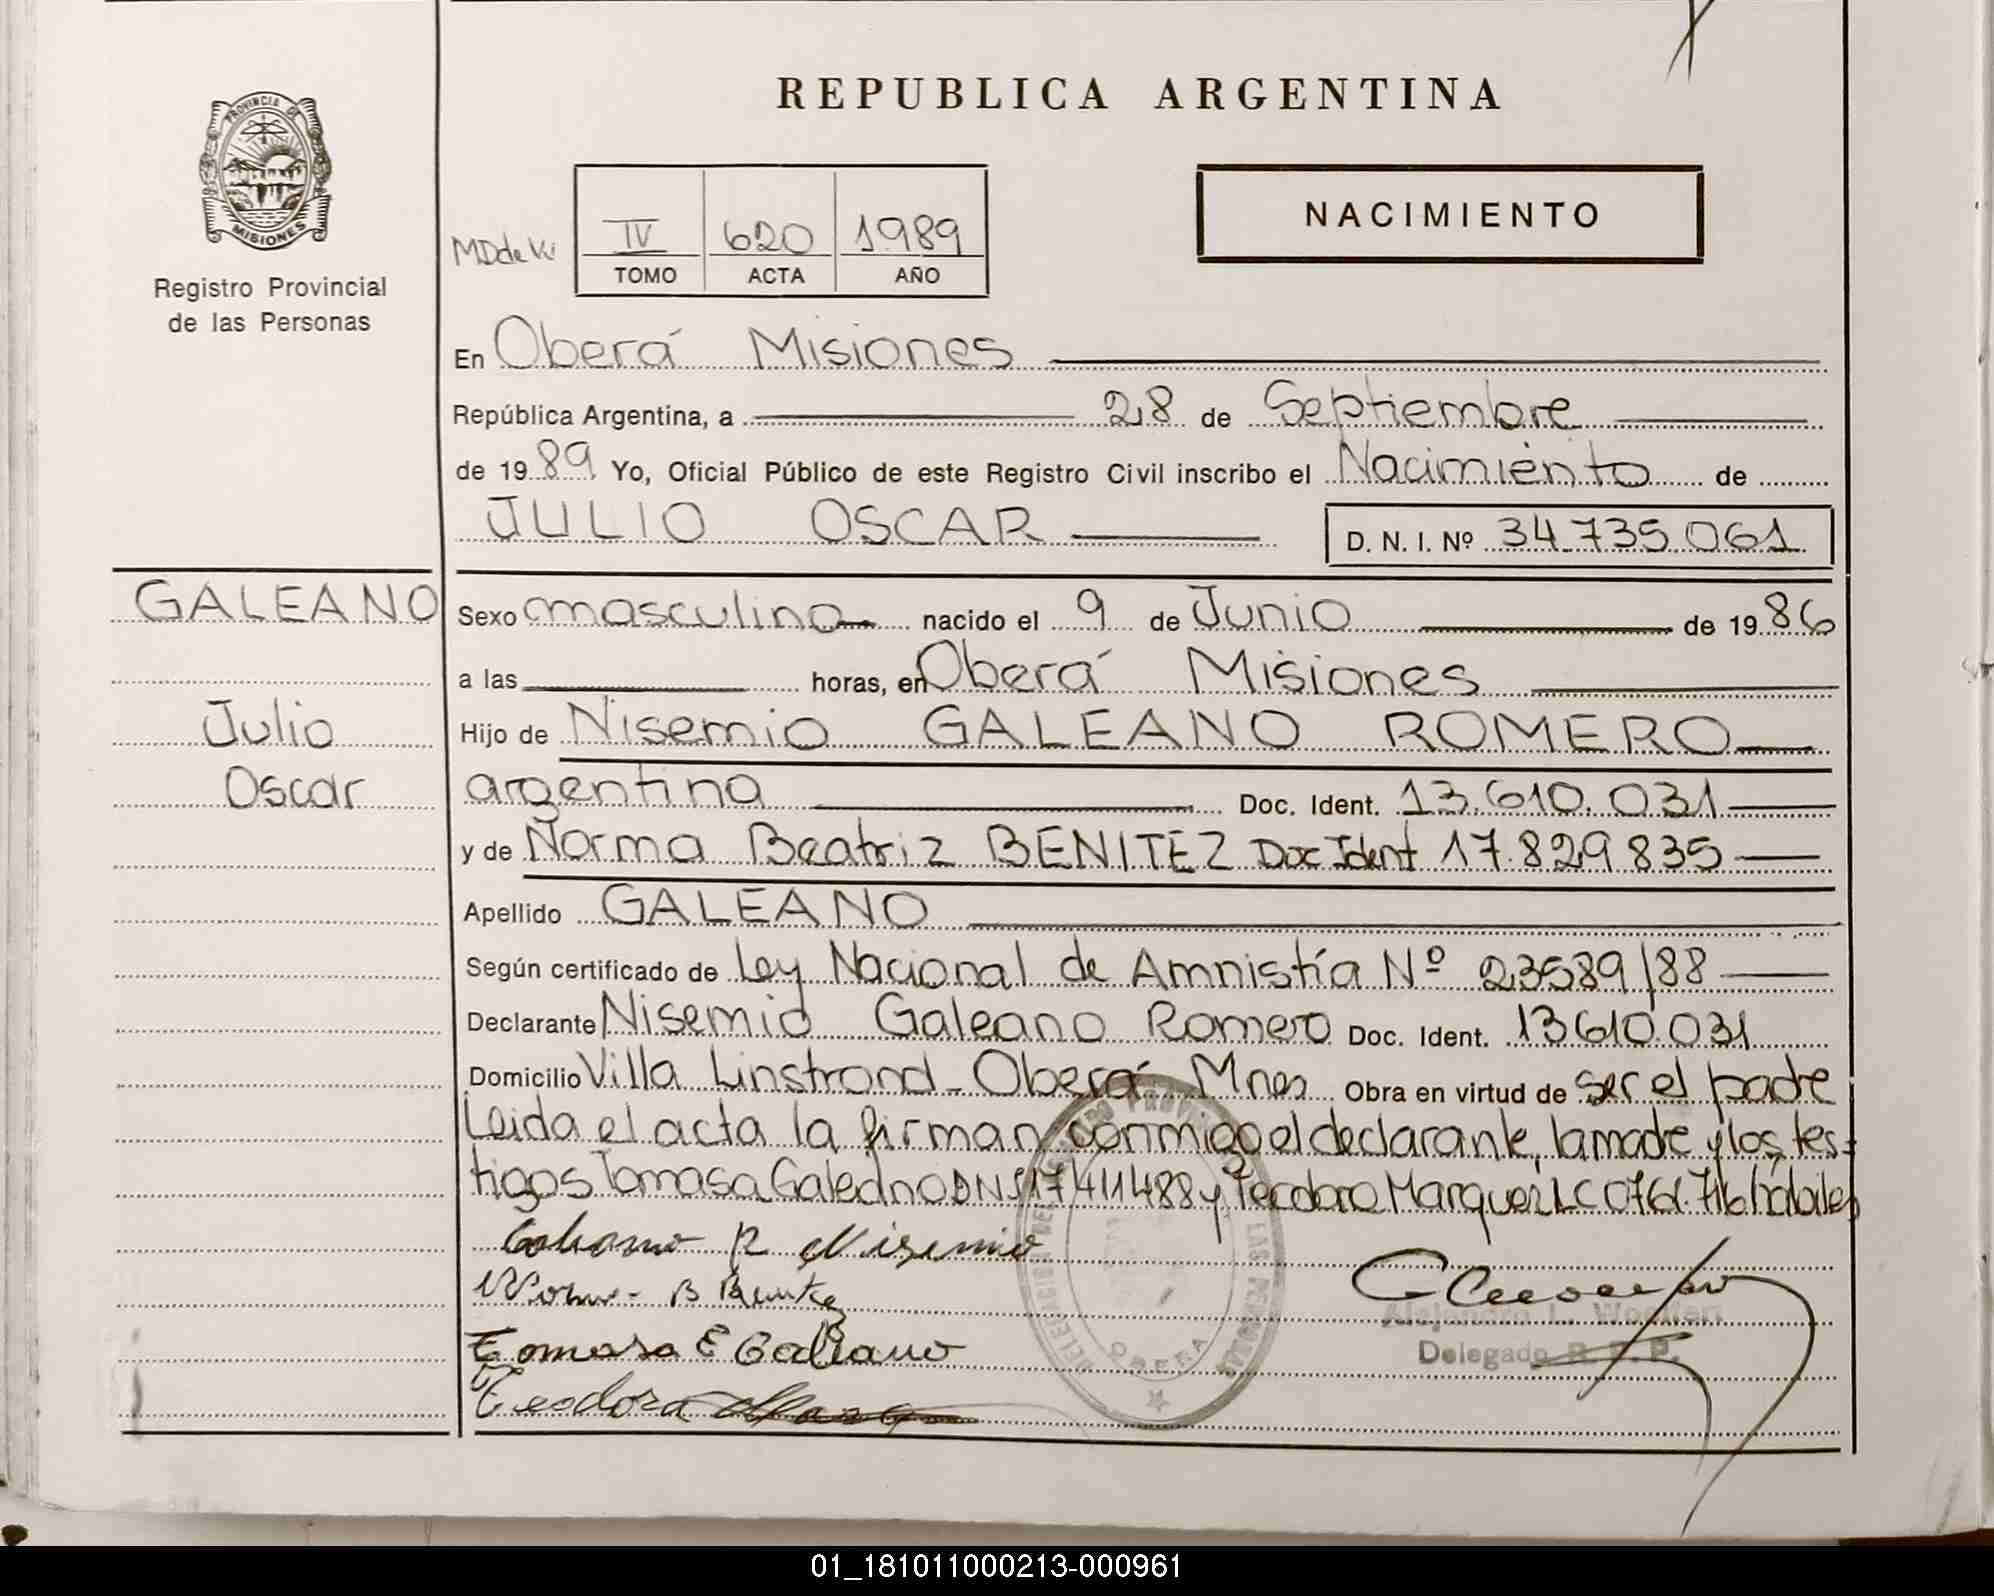 REPUBLICA ARGENTINA
PROVINCIA DE
MISIONES
Registro Provincial
de las Personas
NACIMIENTO
IV 620 1989
TOMO ACTA AÑO
En Oberá Misiones
República Argentina, a 28 de Septiembre
de 1989 Yo, Oficial Público de este Registro Civil inscribo el Nacimiento de
JULIO OSCAR D. N. I. Nº 34.735.061
GALEANO
Julio
Oscar
Sexo masculino nacido el 9 de Junio de 1986
a las horas, en Oberá Misiones
Hijo de Nisemio GALEANO ROMERO
argentina Doc. Ident. 13.610.031
y de Norma Beatriz BENITEZ Doc Ident 17.829.835
Apellido GALEANO
Según certificado de Ley Nacional de Amnistía Nº 23589/88
Declarante Nisemio Galeano Romero Doc. Ident. 13610.031
Domicilio Villa Linstrond - Oberá Mnes Obra en virtud de ser el padre
Leida el acta la firman conmigo el declarante, la madre y los tes-
tigos Tomasa Galeano DNI 17411488 y Teodora Marquez LC 0761.716 hábiles
Galeano R Nisemio
Norma B Benitez
Tomasa E Galeano
Teodora
Alejandro L.
Delegado R. P. P.
OBERA
01_181011000213-000961